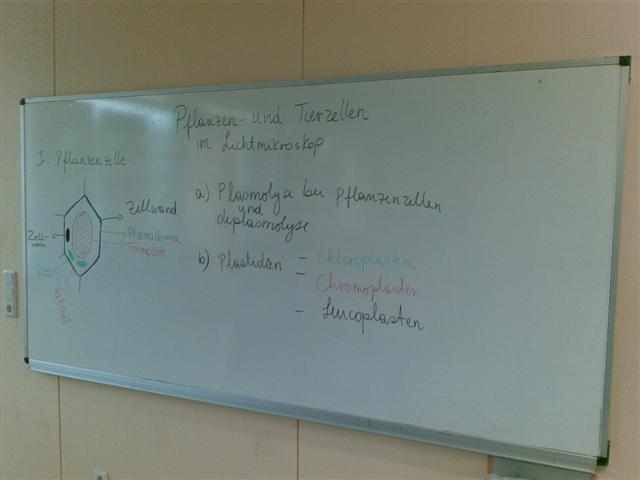 Pflanzen- und Tierzellen
im Lichtmikroskop
I. Pflanzenzelle
Zellwand
Plasmalemma
Tonoplast
Zell-
kern
Vakuole
a) Plasmolyse bei Pflanzenzellen
und
deplasmolyse
b) Plastidien - Chloroplasten
- Chromoplasten
- Leucoplasten